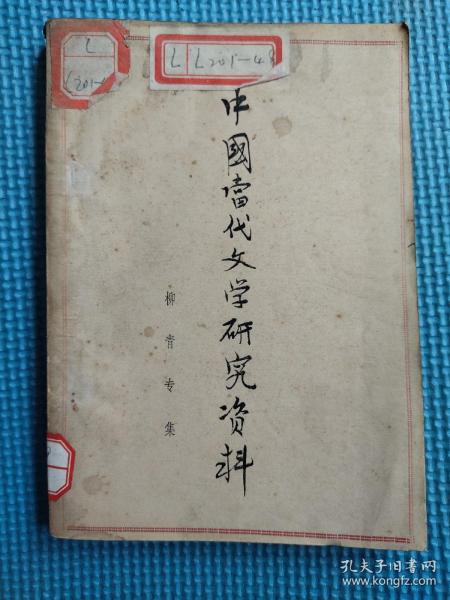 L
L201-4
L L201-48
中國當代文学研究资料
柳青专集
孔夫子旧书网
www.kongfz.com